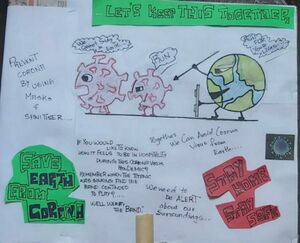 LET'S KEEP THIS TOGETHER,
PREVENT
CORONA
BY USING
MASKS
&
SANITISER
RUN
IF YOU WOULD
LIKE TO KNOW
HOW IT FEELS TO BE IN HOSPITALS
DURING THIS CORONAVIRUS
PANDEMIC?
REMEMBER WHEN THE TITANIC
WAS SINKING AND THE
BAND CONTINUED
TO PLAY?...
WELL WE'RE
THE BAND.
Together We Can Avoid Corona
Virus from
Earth...
We need to
be ALERT
about our
Surroundings...
SAVE
EARTH
FROM
CORONA
STAY
HOME
STAY
SAFE